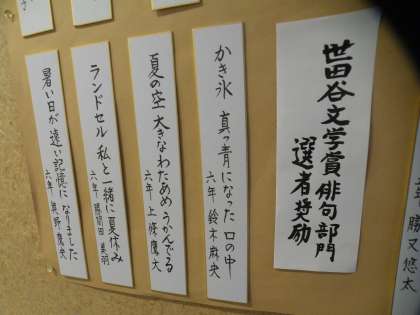 世田谷文学賞俳句部門
選者奨励
かき氷 真っ青になった 口の中
六年 鈴木麻央
夏の空 大きなわたあめ うかんでる
六年 上條慶大
ランドセル 私と一緒に 夏休み
六年 勝間田 美羽
暑い日が 遠い記憶に なりました
六年
勝又悠太